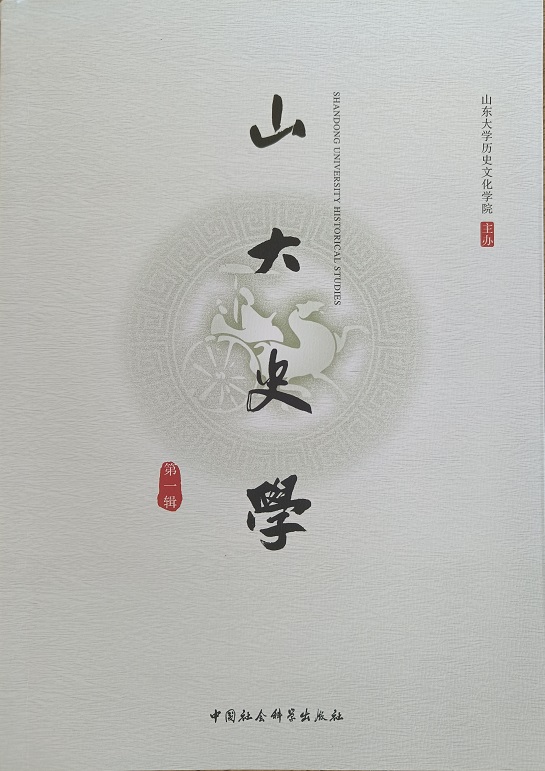 山东大学历史文化学院 主办
SHANDONG UNIVERSITY HISTORICAL STUDIES
山大史學
第一辑
中国社会科学出版社